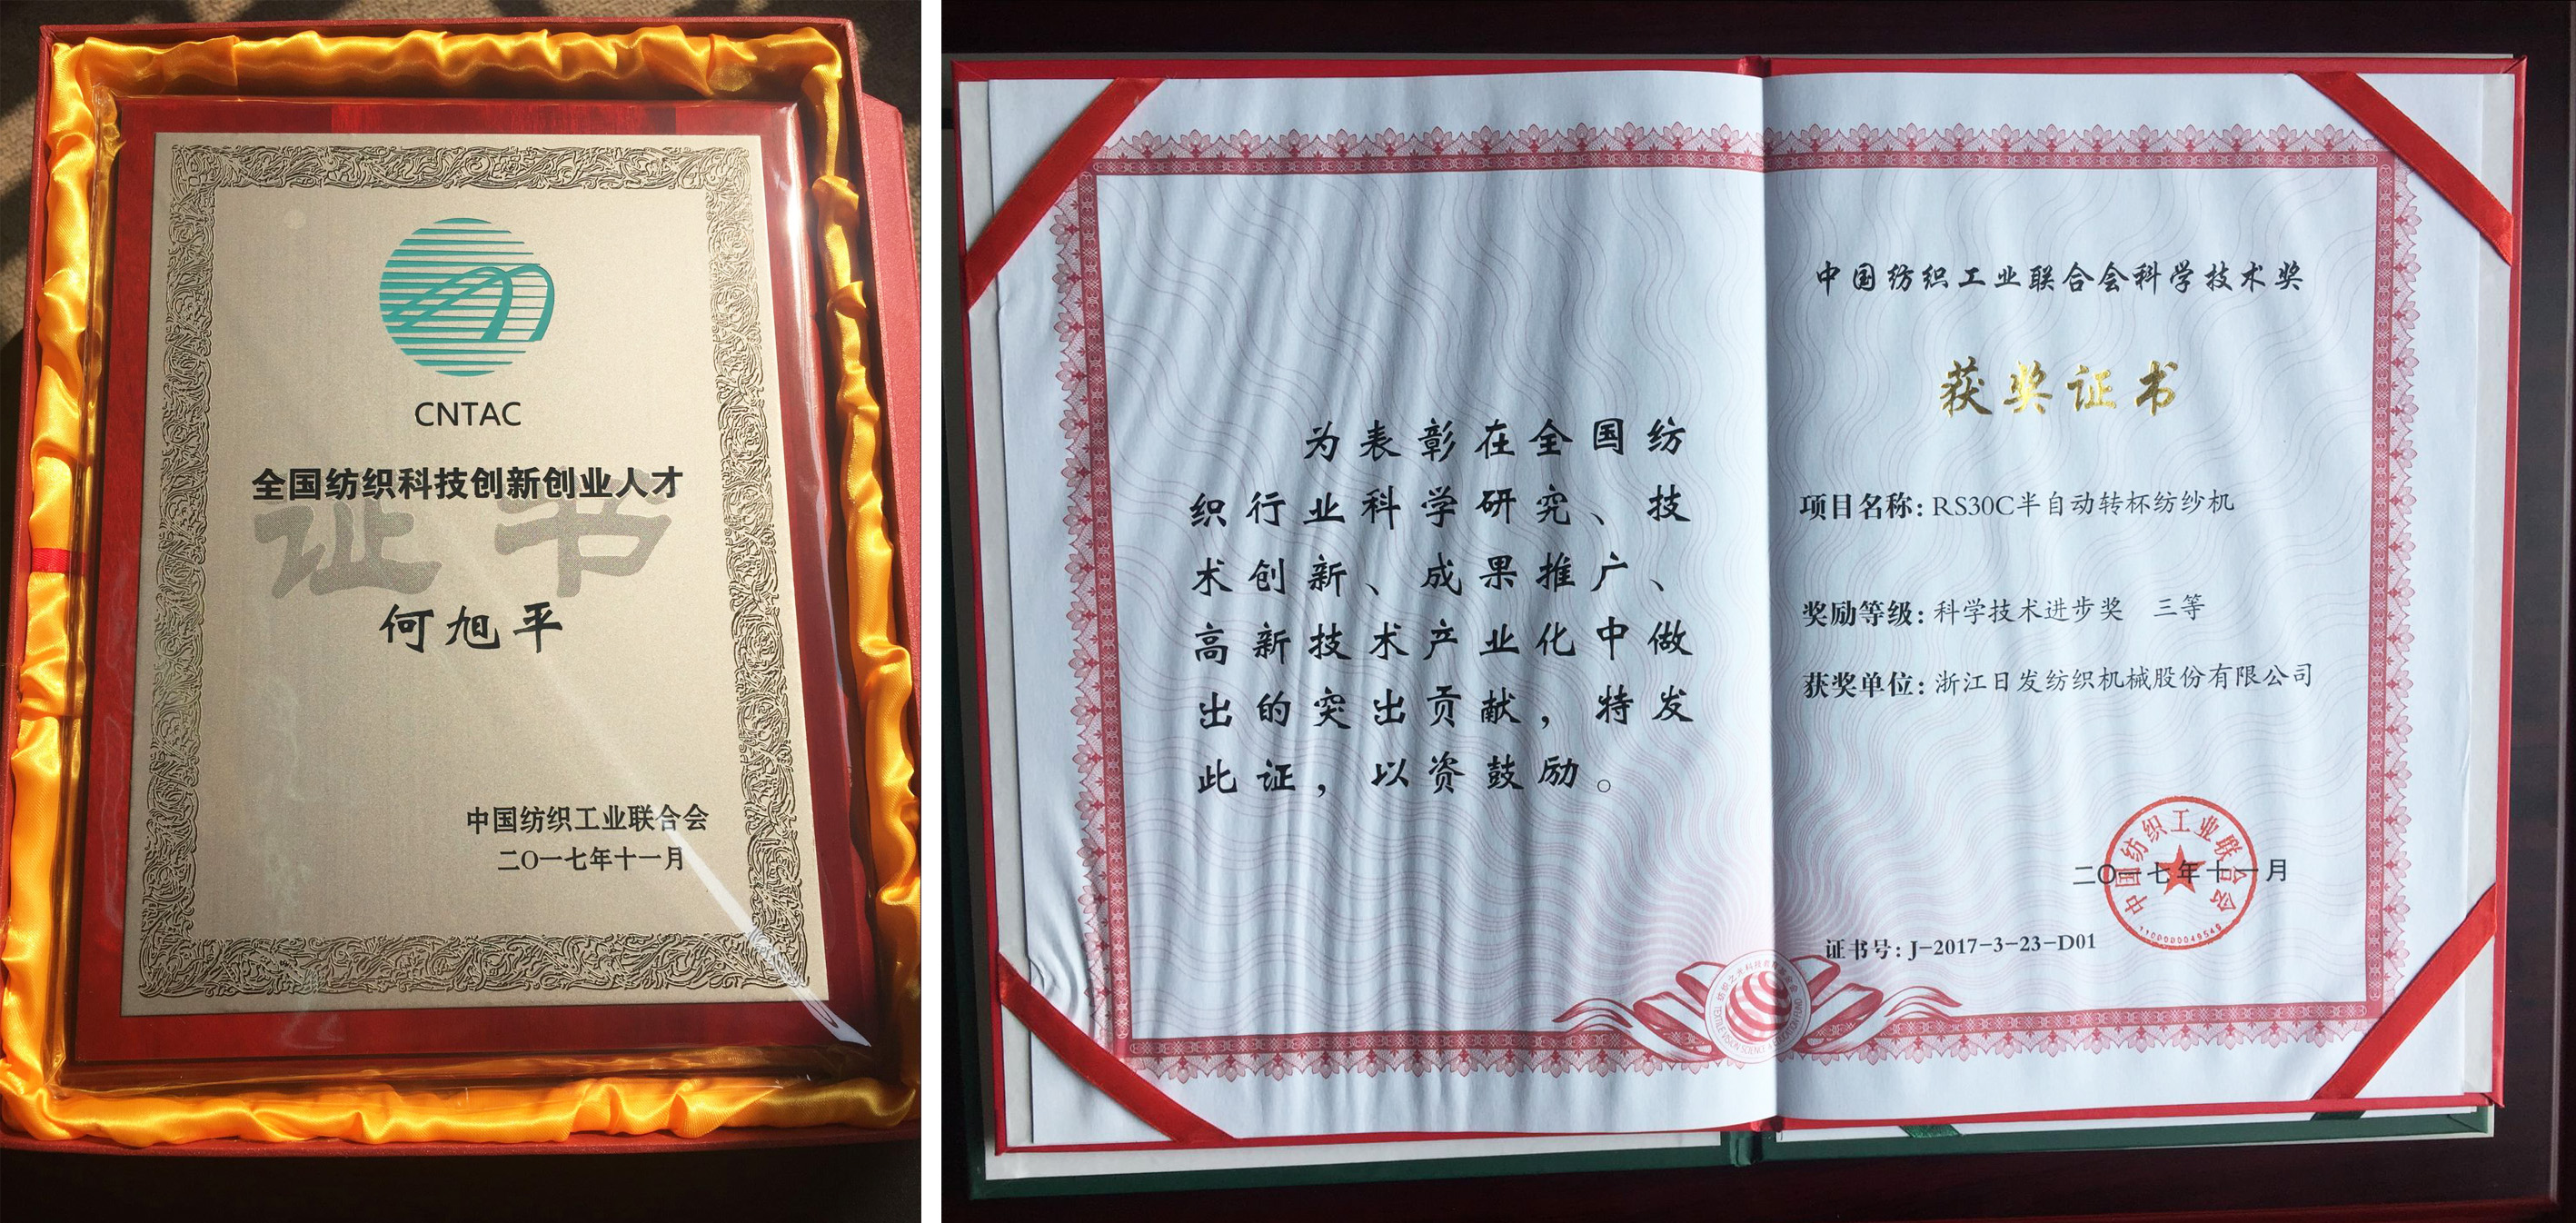 CNTAC
全国纺织科技创新创业人才
证书
何旭平
中国纺织工业联合会
二〇一七年十一月
为表彰在全国纺
织行业科学研究、技
术创新、成果推广、
高新技术产业化中做
出的突出贡献，特发
此证，以资鼓励。
中国纺织工业联合会科学技术奖
获奖证书
项目名称：RS30C半自动转杯纺纱机
奖励等级：科学技术进步奖 三等
获奖单位：浙江日发纺织机械股份有限公司
中国纺织工业联合会
二〇一七年十一月
1100000049549
证书号：J-2017-3-23-D01
纺织之光科技教育基金会
TEXTILE VISION SCIENCE & EDUCATION FUND